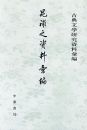 古典文學研究資料彙編
晁補之資料彙編
中華書局